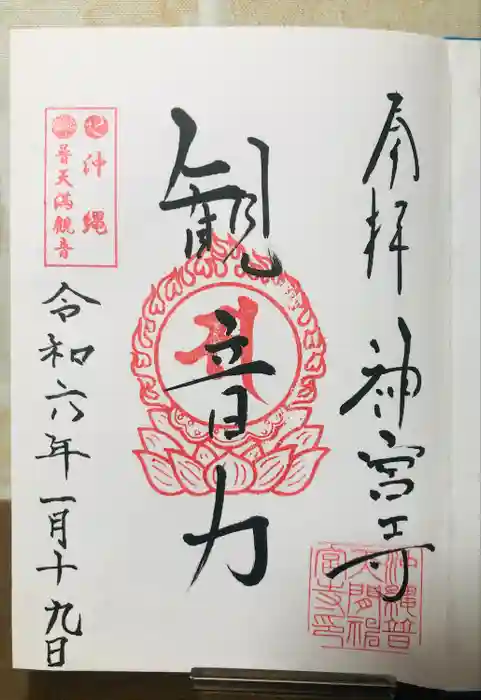 奉拝
神宮寺
観音力
沖縄
普天満観音
令和六年一月十九日